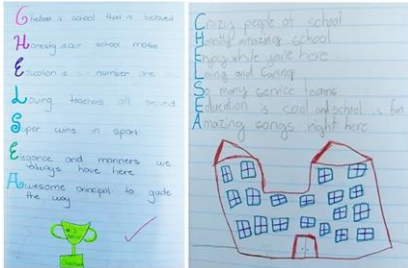 Chelsea a school that is beloved
Honesty is our school motto
Education is number one
Loving teachers all around
Super wins in sport
Elegance and manners we
always have here
Awesome principal to guide
the way
Crazy people at school
Hugely amazing school
Enjoy while you're here
Loving and Caring
So many service teams
Education is cool and school is fun
Amazing songs right here